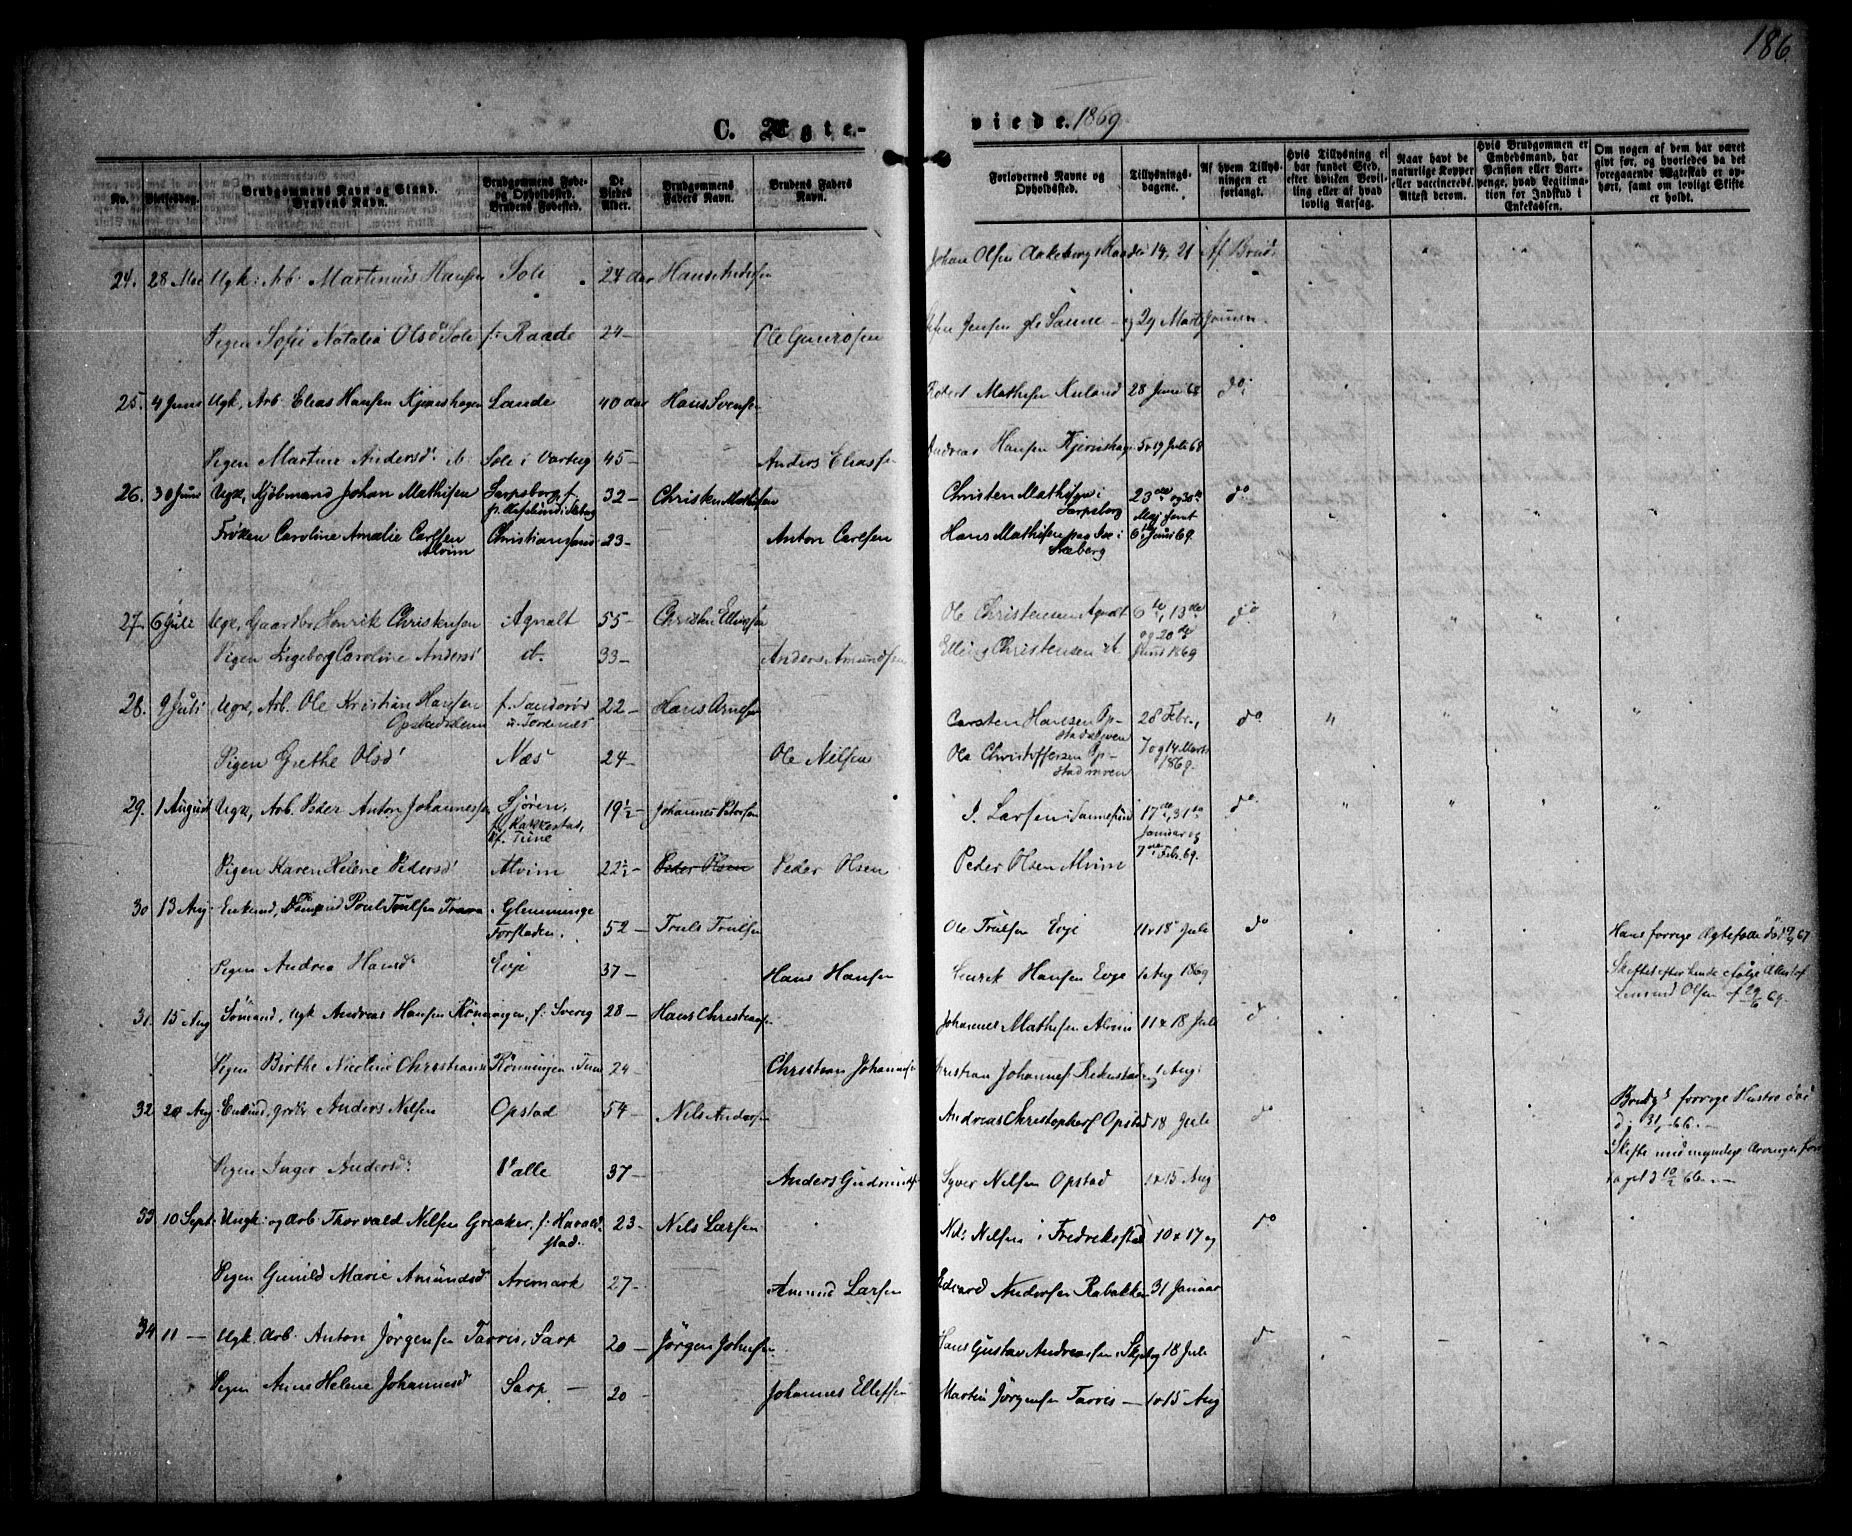 186.
C. Ægte-
viede. 1869
No.
Vielsesdag.
Brudgommens Navn og Stand.
Brudens Navn.
Brudgommens Føde-
og Opholdssted.
Brudens Fødested.
De
Viedes
Alder.
Brudgommens
Faders Navn.
Brudens Faders
Navn.
Forlovernes Navne og
Opholdssted.
Tillysnings-
dagene.
Af hvem Tillys-
ningen er
forlangt.
Hvis Tillysning ei
har fundet Sted,
efter hvilken Bevil-
ling eller af hvad
lovlig Aarsag.
Naar havt de
naturlige Kopper
eller vaccinerede.
Attest derom.
Hvis Brudgommen er
Embedsmand, har
Pension eller Var-
penge, hvad Legitima-
tion for Indskud i
Enkekassen.
Om nogen af dem har været
gift før, og hvorledes da det
foregaaende Ægteskab er op-
hørt, samt om lovligt Skifte
er holdt.
24. 28 Mai Ugk: Arb: Martinus Hansen Sole 24 aar Hans Andersen Johan Olsen Aakeberg i Raade 14, 21 Af Brud-
Pigen Sofie Natalia Olsd Sole f: Raade 24 — Ole Gunrosen Jensen gle Sanne — og 29 Marts gommen.
25. 4 Juni Ugk, Arb. Elias Hansen Kjerrshagen Lande 40 aar Hans Svensen Robert Mathisen 28 Juni 68 do
Pigen Martine Andersd Sole i Varteig 45 — Anders Eliassen Andreas Hansen 5 & 19 Juli 68
26. 30 Juni Ugk, Kjøbmand Johan Mathisen Sarpsborg, f. 32 — Christen Mathisen Christen Mathisen i 23de og 30te do
Sarpsborg Maj samt
Frøken Caroline Amalie Carlsen Christiansand 23 — Anton Carlsen Hans Mathisen paa i 6te Juni 69.
Alvim Skeberg
27. 6 Juli Ugk, Gaardbr Henrik Christensen Agnalt 55 — Christen Ellingsen Ole Christensen Agnalt 6te, 13de do
og 20de
Pigen Ingeborg Caroline Andersd d. 33 — Anders Amundsen Elling Christensen Juni 1869
28. 9 Juli Ugk, Arb. Ole Kristian Hansen f. Sanderød 22 — Hans Arnesen Carsten Hansen Op- 28 Febr., do
Opstadskven u. Torsnæs stadskven
Pigen Grethe Olsd Næs 24 — Ole Nilsen Ole Christoffersen Op- 7 og 14 Marts
stadskven 1869.
29. 1 August Ugk, Arb. Peder Anton Johannessen Gjøren, 19½ Johannes Petersen J. Larsen i Sannesund 17de, 31te do
f. Kakkestad, Januar og
Kf. Tune 7de Feb. 69.
Pigen Karen Helene Pedersd Alvim 22½ Peder Olsen Peder Olsen Peder Olsen Alvim
30 13 Aug Enkemd, Poul Trulsen Glemminge 52 — Truls Trulsen Ole Trulsen Evje 11 & 18 Juli do Hans forrige Ægtefælle død 67
Forstaden.
Pigen Andrea Hansd Evje 37 — Hans Hansen Henrik Hansen Evje 1 Aug 1869 Skiftet efter hende ifølge Attest af
Olsen
31. 15 Aug Sømand, Ugk Andreas Hansen Rönningen, f: Sverig 28 — Hans Christiansen Johannes Mathisen Alvim 11 & 18 Juli do
Pigen Birthe Nicoline Christiansd Rönningen i Tune 24 — Christian Johannesen Christian Johannes 1 Aug:
32. 20 Aug Enkmd, grbr Anders Nilsen Opstad 54 — Nils Andersen Andreas Christophers Opstad 18 Juli do Brudg's forrige Hustru død
d. 31 66. —
Pigen Inger Andersd: Valle 37 — Anders Gudmunds Syver Nilsen Opstad 1 & 15 Aug Skifte med myndige Arvinger fore-
taget 66. —
33 10 Sept: Ungk: og Arb: Thorvald Nilsen Greaker, f: Haralds- 23 — Nils Larsen Nils Nilsen i Fredrikstad 10 & 17 og do
stad.
Pigen Gunild Marie Amundsd Aremark 27 — Amund Larsen Edvard Andersen Rabakken 31 Januar
34 11 — Ugk. Arb. Anton Jörgensen Tarris, Sarp 20 — Jörgen Johnsen Hans Gustav Andreassen i Skj 18 Juli do
Pigen Anne Helene Johannesd Sarp — 20 — Johannes Ellefsen Martin Jörgensen Tarris — 1 & 15 Aug